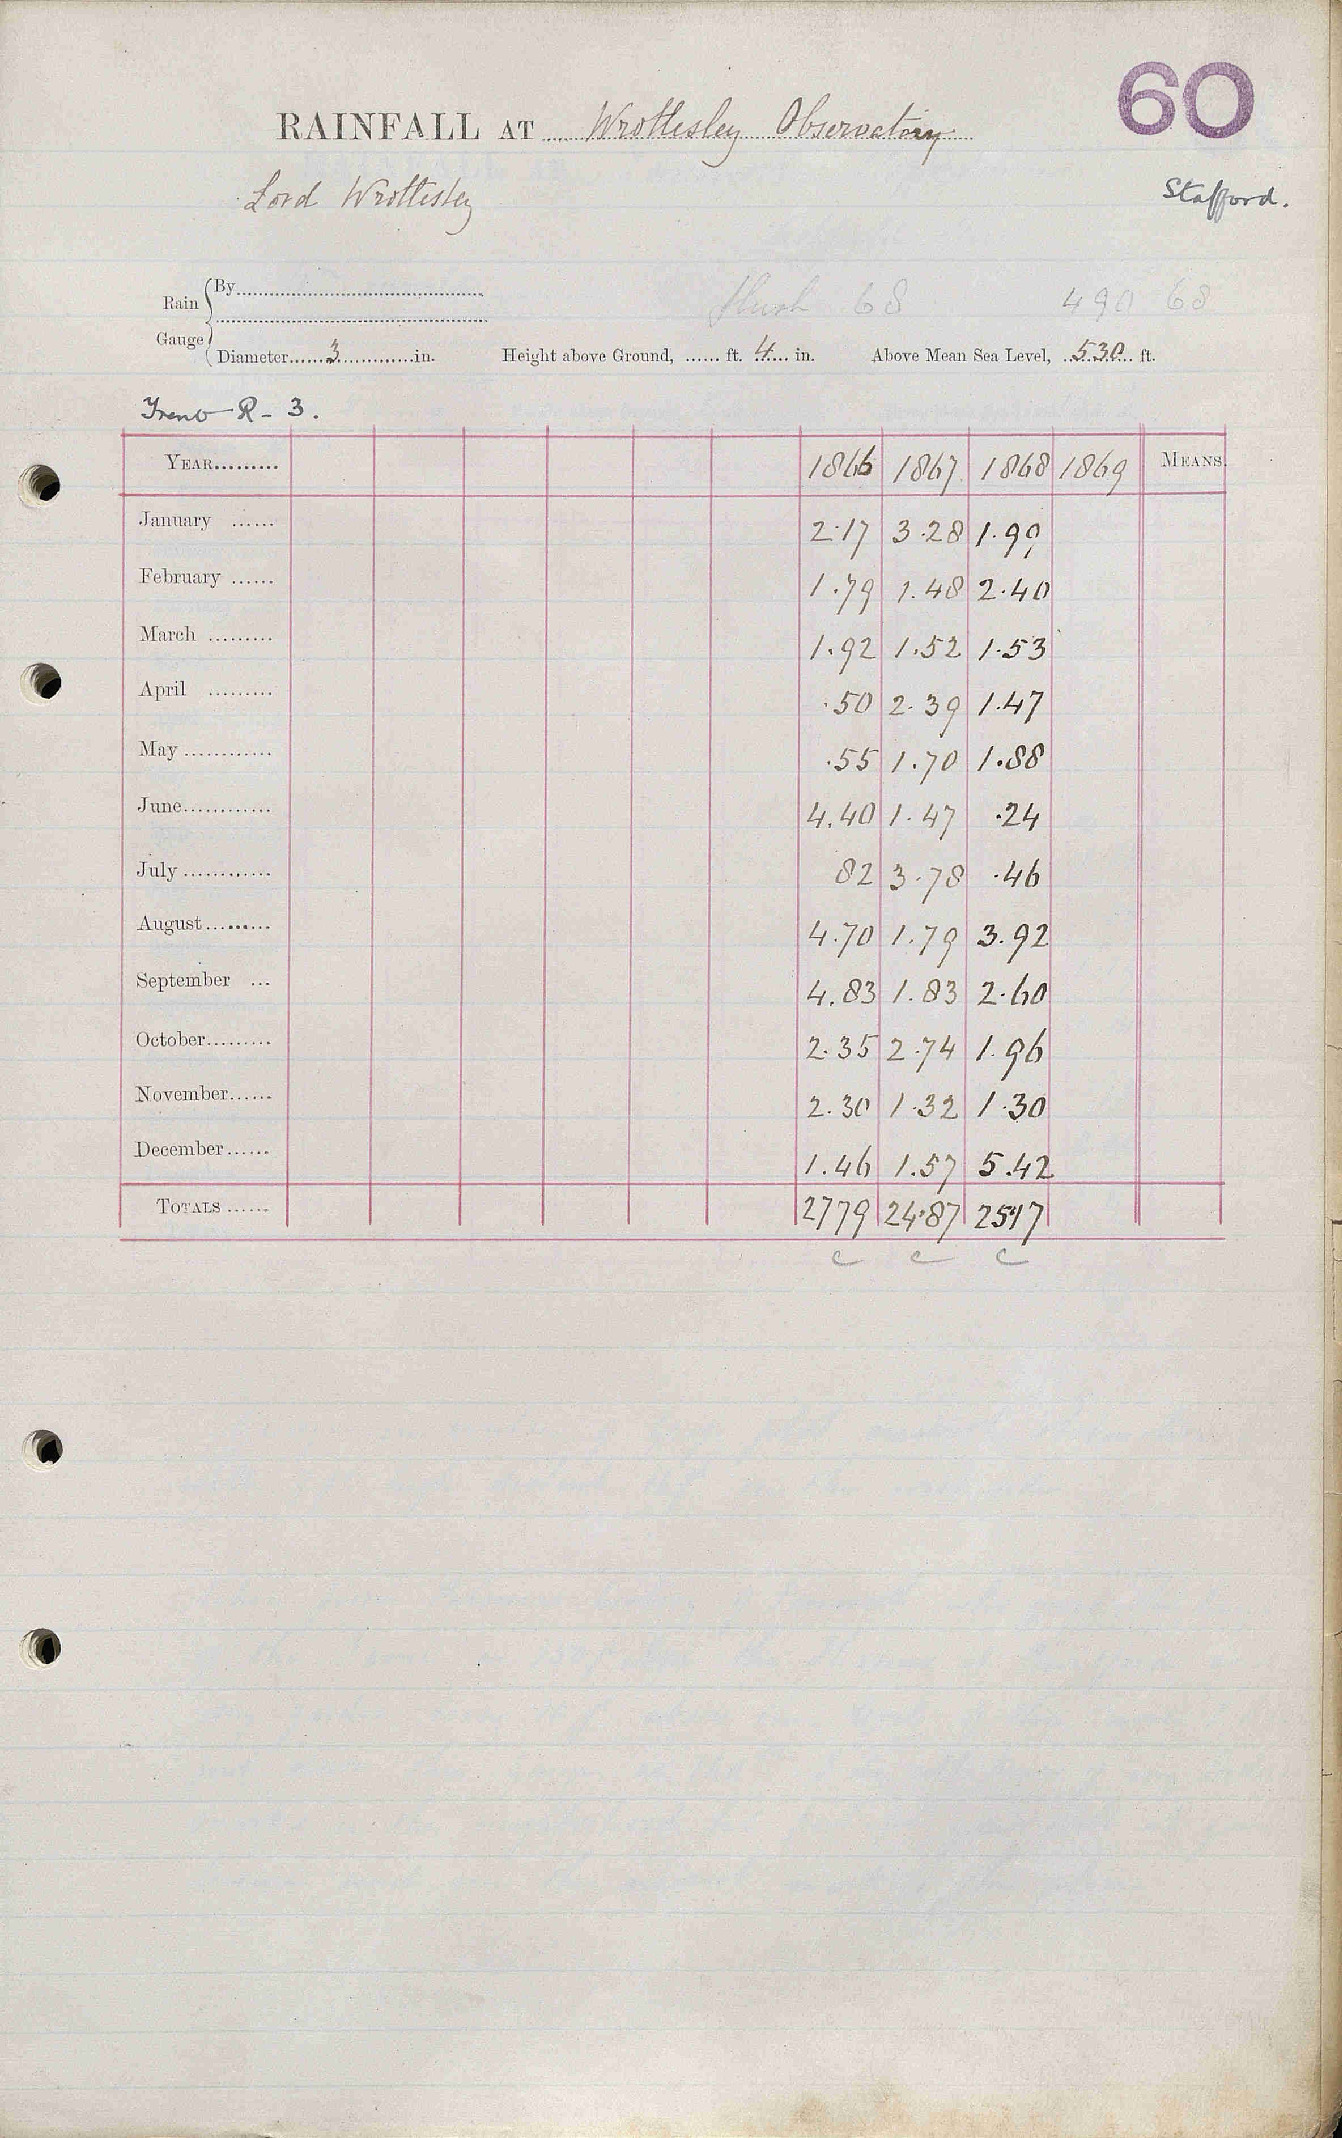 60
RAINFALL AT Wrottesley Observatory
Lord Wrottesley Stafford.
Rain Gauge By
Flush 68 490 68
Diameter 3 in. Height above Ground, ...... ft. 4 in. Above Mean Sea Level, 530 ft.
Trent R - 3.
YEAR......... 1866 1867 1868 1869 MEANS.
January ...... 2.17 3.28 1.99
February ...... 1.79 1.48 2.40
March ......... 1.92 1.52 1.53
April ......... .50 2.39 1.47
May ............ .55 1.70 1.88
June............ 4.40 1.47 .24
July ............ 82 3.78 .46
August ......... 4.70 1.79 3.92
September ... 4.83 1.83 2.60
October......... 2.35 2.74 1.96
November...... 2.30 1.32 1.30
December...... 1.46 1.57 5.42
TOTALS ...... 2779 24.87 25.17
c c c